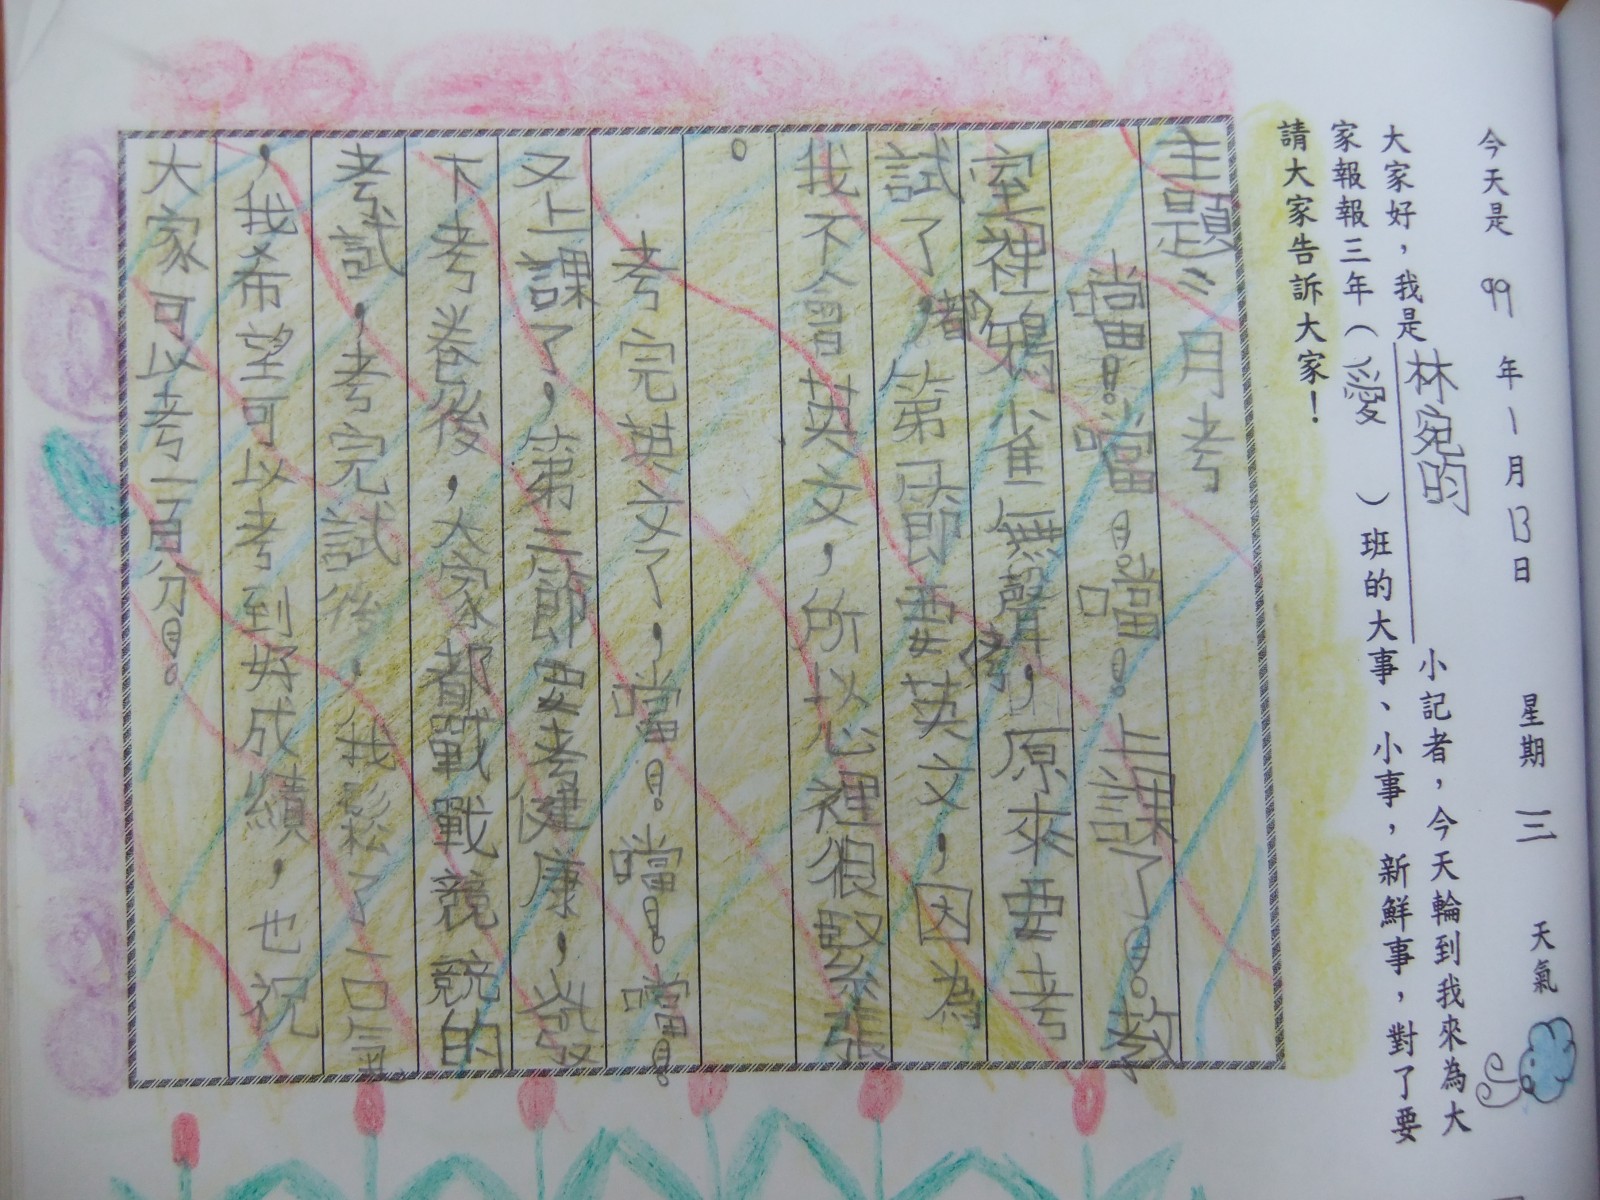 今天是 99 年 1 月 13 日 星期 三 天氣
大家好，我是林宛昀 小記者，今天輪到我來為大
家報報三年（愛 ）班的大事、小事，新鮮事，對了要
請大家告訴大家！
主題：月考
噹！噹！噹！上課了！。教
室裡鴉雀無聲，原來要考
試了，第 節要考英文，因為
我不會英文，所以心裡很緊張
。
考完英文了，噹！噹！噹！
又上課了，第六節要考健康，發
下考卷後，大家都戰戰競競的
考試，考完試後，我鬆了一口氣
，我希望可以考到好成績，也祝
大家可以考一百分！。